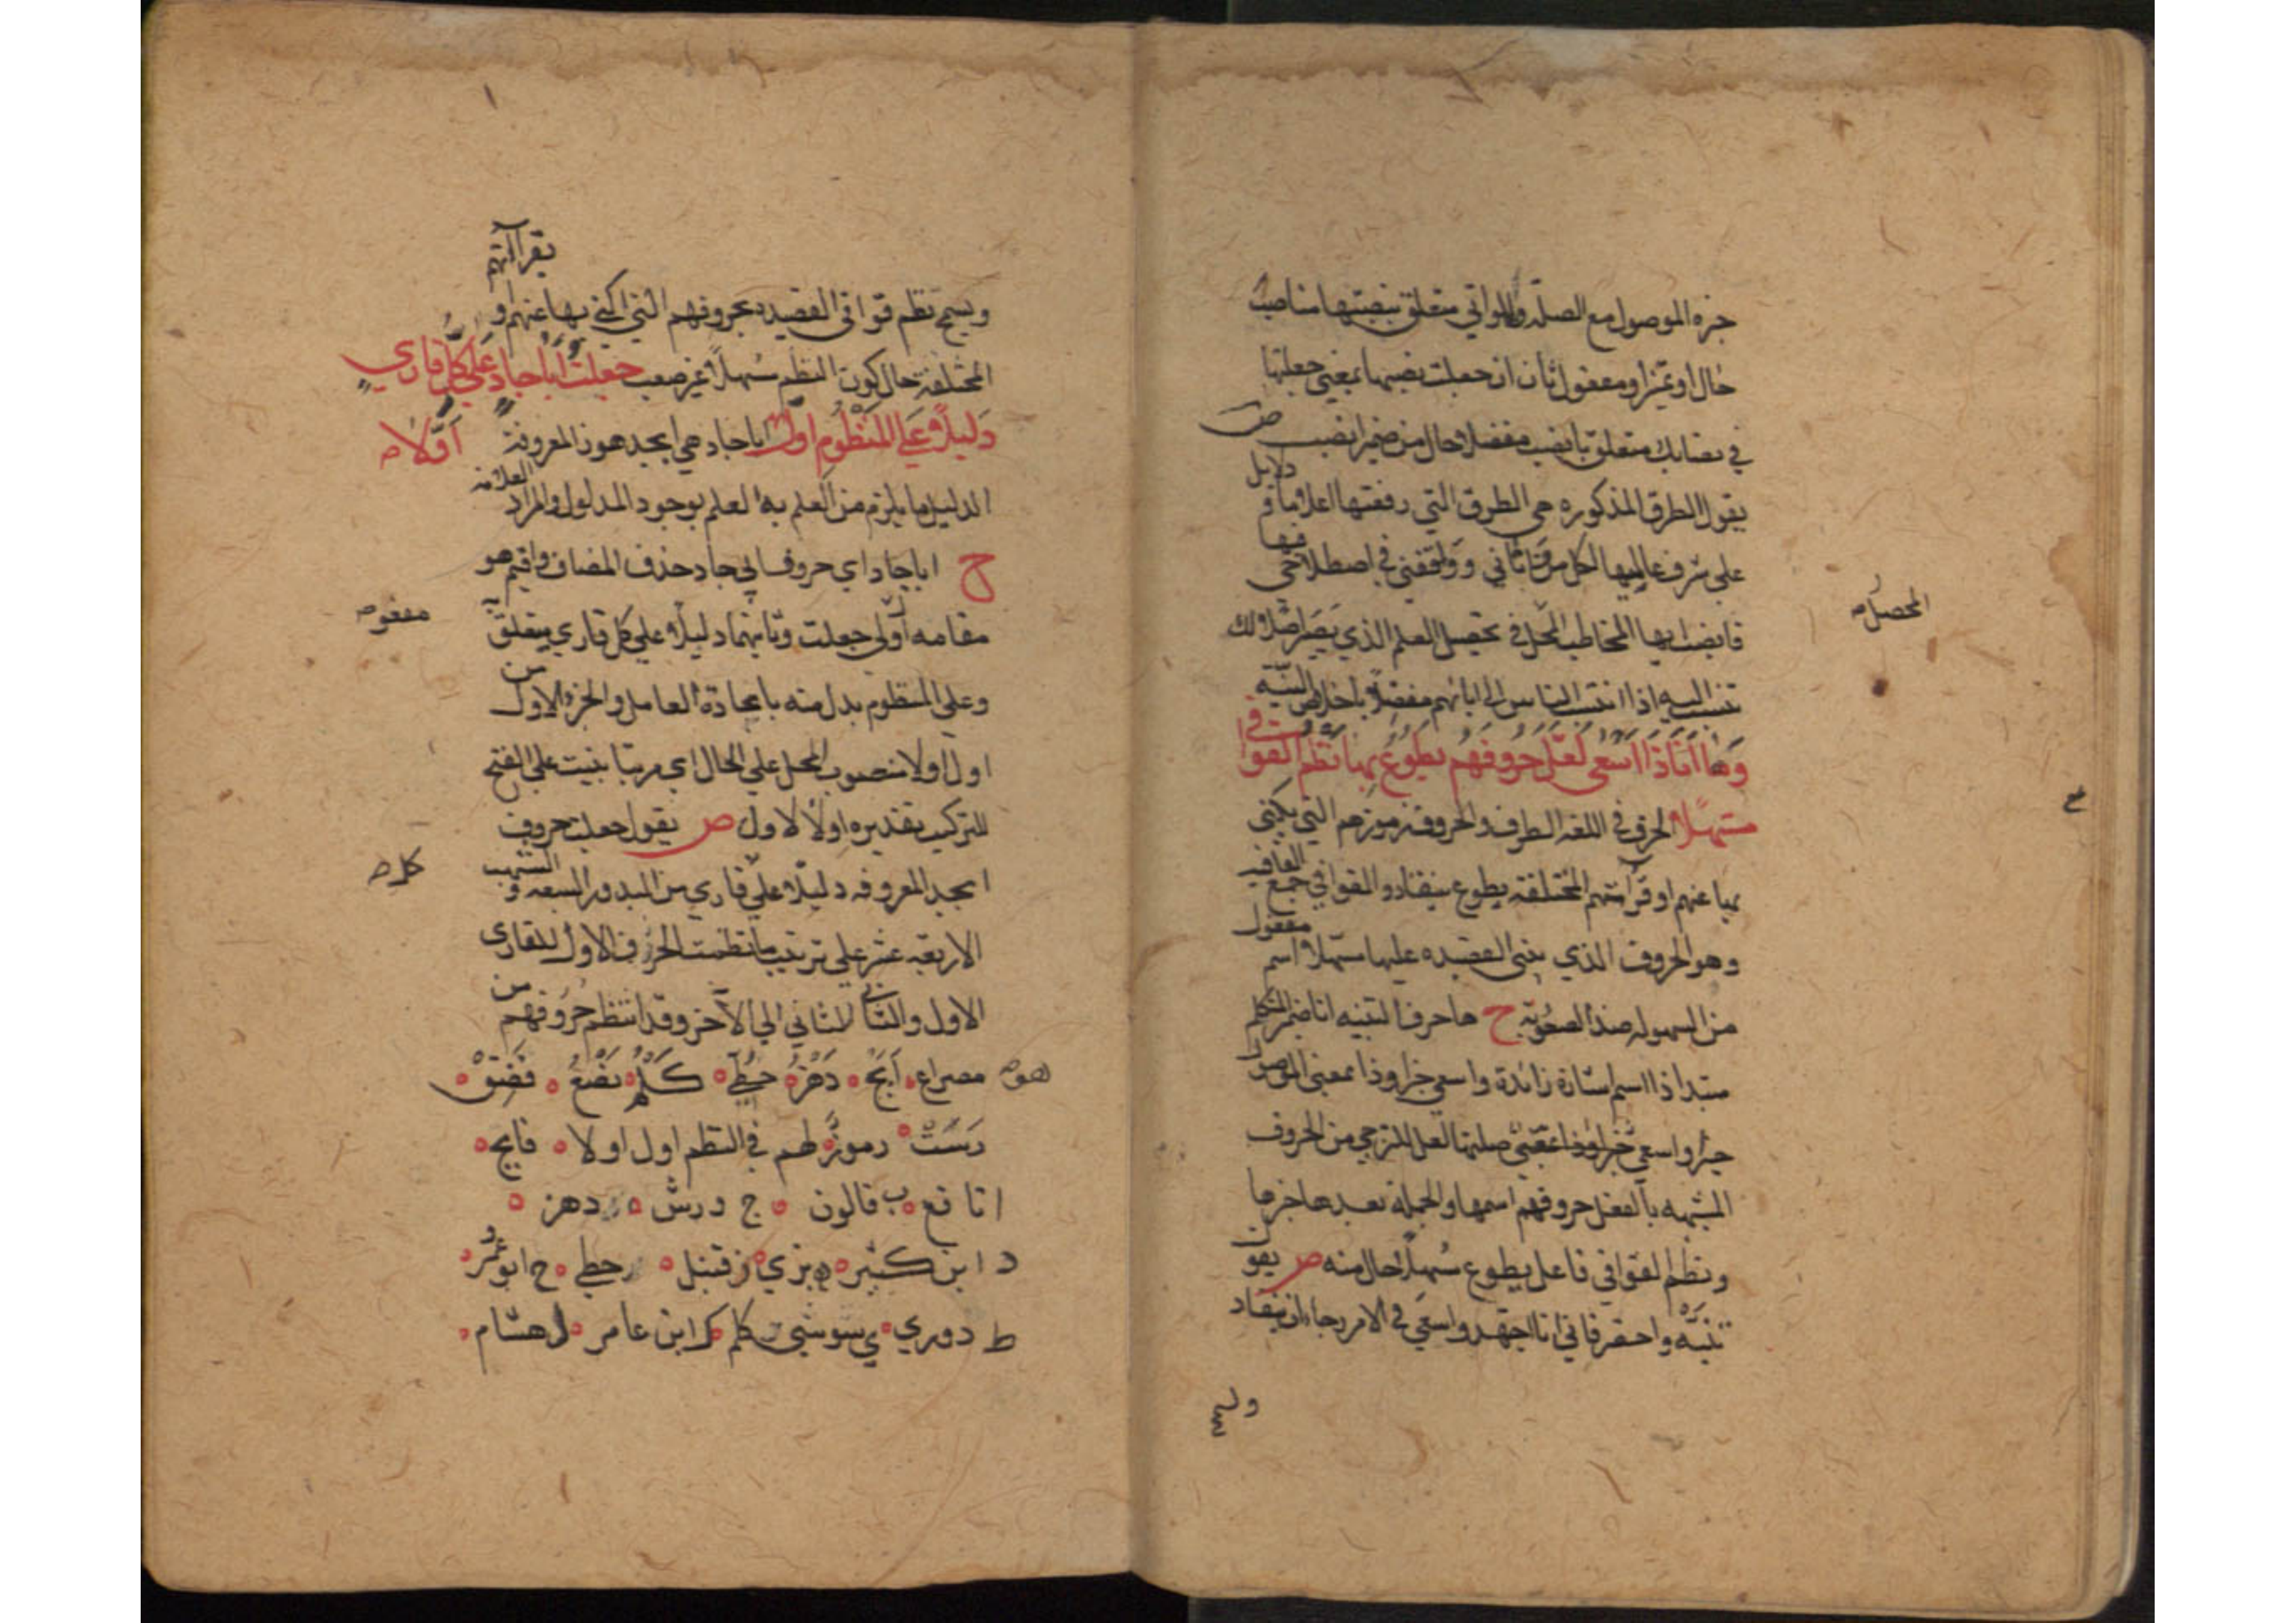 جزء الموصول مع الصلة واللواتي متعلق بنصبتها مناصب
حال او تميز او مفعول ثان ان جعلت نصبها بمعني جعلتها
في نصابك متعلق بانصب مفضلا حال من ضمير انصب ص
يقول الطرق المذكوره هي الطرق التي رفعتها اعلاما و دلايل
علي شرف عالميها لكل من تاتاني ووافقني في اصطلاحي فيها
فانصب ايها المخاطب في تحصيل العلم الذي يصير اصلا لك
المحصل
تنسب اليه اذا انتسب الناس الي ابائهم مفضلا باخلاص النية
وها انا ذا اسعي لعل حروفهم يطوع بها نظم القوافي
مسهلا الحرف في اللغه الطرف والحروف رموزهم التي يكني
بها عنهم او قرآتهم المختلفه يطوع ينقاد والقوافي جمع القافيه
وهو الحروف الذي بني القصيده عليها مسهلا اسم مفعول
من السهوله ضد الصعوبة ح ها حرف التنبيه انا ضمير المتكلم
مبتدا ذا اسم اشارة زائدة واسعي خبر او ذا بمعني الموصول
خبر او اسعي
المشبهه بالفعل حروفهم اسمها والجملة بعدها خبرها
ونظم القوافي فاعل يطوع مسهلا حال منه ص يقول
تنبه واحضر فاني انا اجتهد واسعي في الامر رجاء ان ينقاد
بقرآتهم
ويسمح نظم قوافي القصيده بحروفهم التي اكني بها عنهم او
المختلفة حال كون النظم سهلا غير صعب جعلت ابا جاد علي كل قاري
دليلا علي المنظوم اول اولا ابا جاد هي ابجد هوز المعروفة
الدليل ما يلزم من العلم به العلم بوجود المدلول والمراد العلامه
ح ابا جاد اي حروف ابي جاد حذف المضاف واقيم هو
مقامه اولي جعلت وثانيهما دليلا علي كل قاري متعلق به
مفعو
وعلي المنظوم بدل منه باعادة العامل والجزء الاول من
اول اولا منصوب المحل علي الحال اي مرتبا بنيت علي الفتح
للتركيب تقديره اولا لاول ص يقول جعلت حروف
ابجد المعروفه دليلا علي قاري من البدور السبعه و الشهب
كل
الاربعه عشر علي ترتيب ما نظمت الحرف الاول للقاري
الاول والثاني للثاني الي الآخر وقد انتظم حروفهم من
مصراع ابج دهز حطي كلم نصع فضق
رست رموز لهم في النظم اول اولا فابج
ا نافع ب قالون ج ورش دهز
د ابن كثير ه بزي ز قنبل حطي ح ابو عمر
ط دوري ي سوسي كلم ك ابن عامر ل هشام